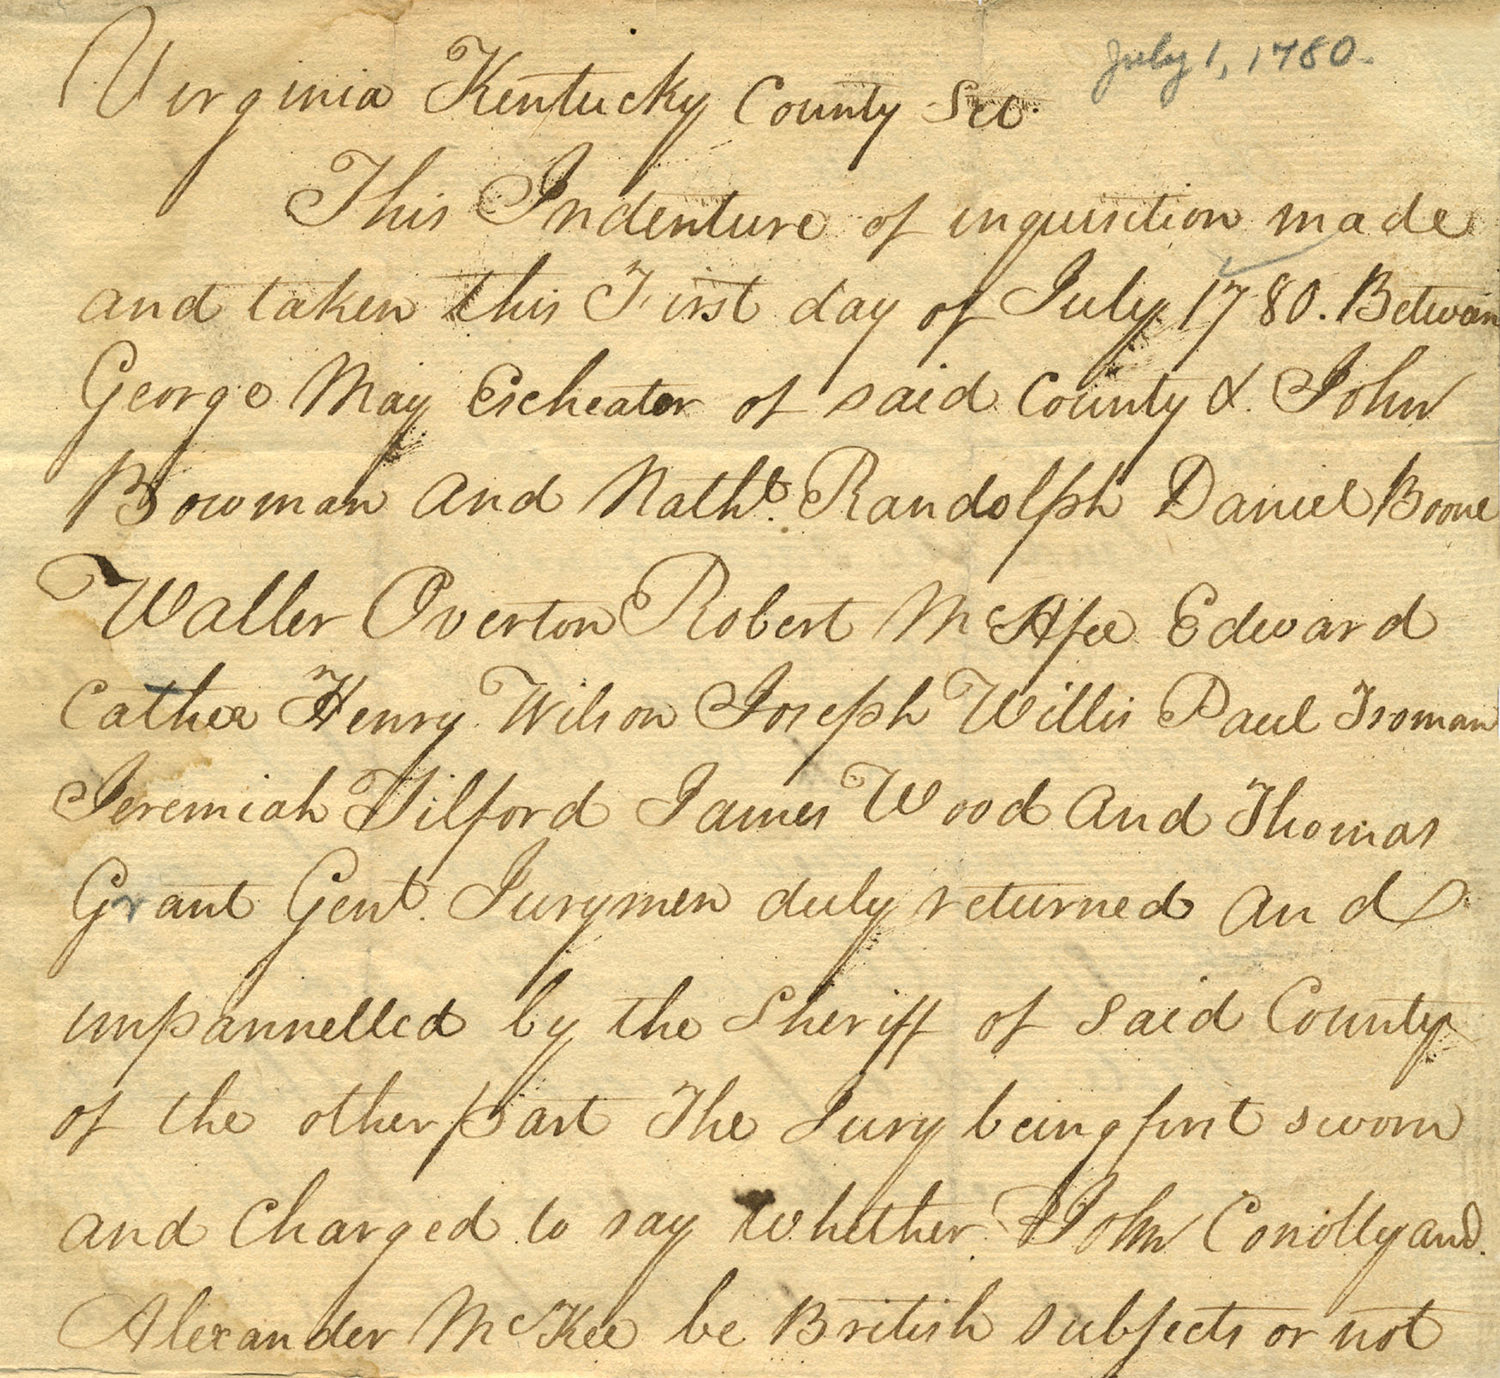 July 1, 1780.
Virginia Kentucky County Sct.
This Indenture of inquisition made
and taken this First day of July 1780. Between
George May Escheator of said County & John
Bowman and Nathl. Randolph Daniel Boone
Waller Overton Robert McAfee Edward
Cather Henry Wilson Joseph Willis Paul Froman
Jeremiah Tilford James Wood and Thomas
Grant Gent. Jurymen duly returned and
impannelled by the Sheriff of said County
of the other part The Jury being first sworn
and Charged to say whether John Conolly and
Alexander McKee be British subjects or not